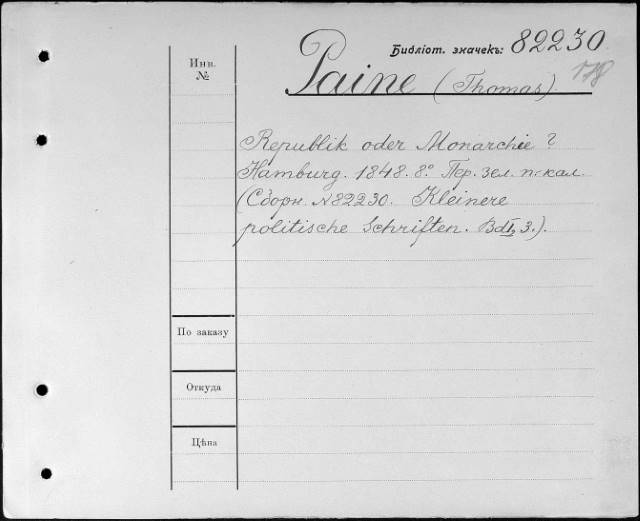 Библіот. значекъ: 82230
178
Инв.
№
Paine (Thomas).
Republik oder Monarchie?
Hamburg. 1848. 8°. Пер. зел. п. кал.
(Сборн. №82230. Kleinere
politische Schriften. Bd I, 3.).
По заказу
Откуда
Цѣна